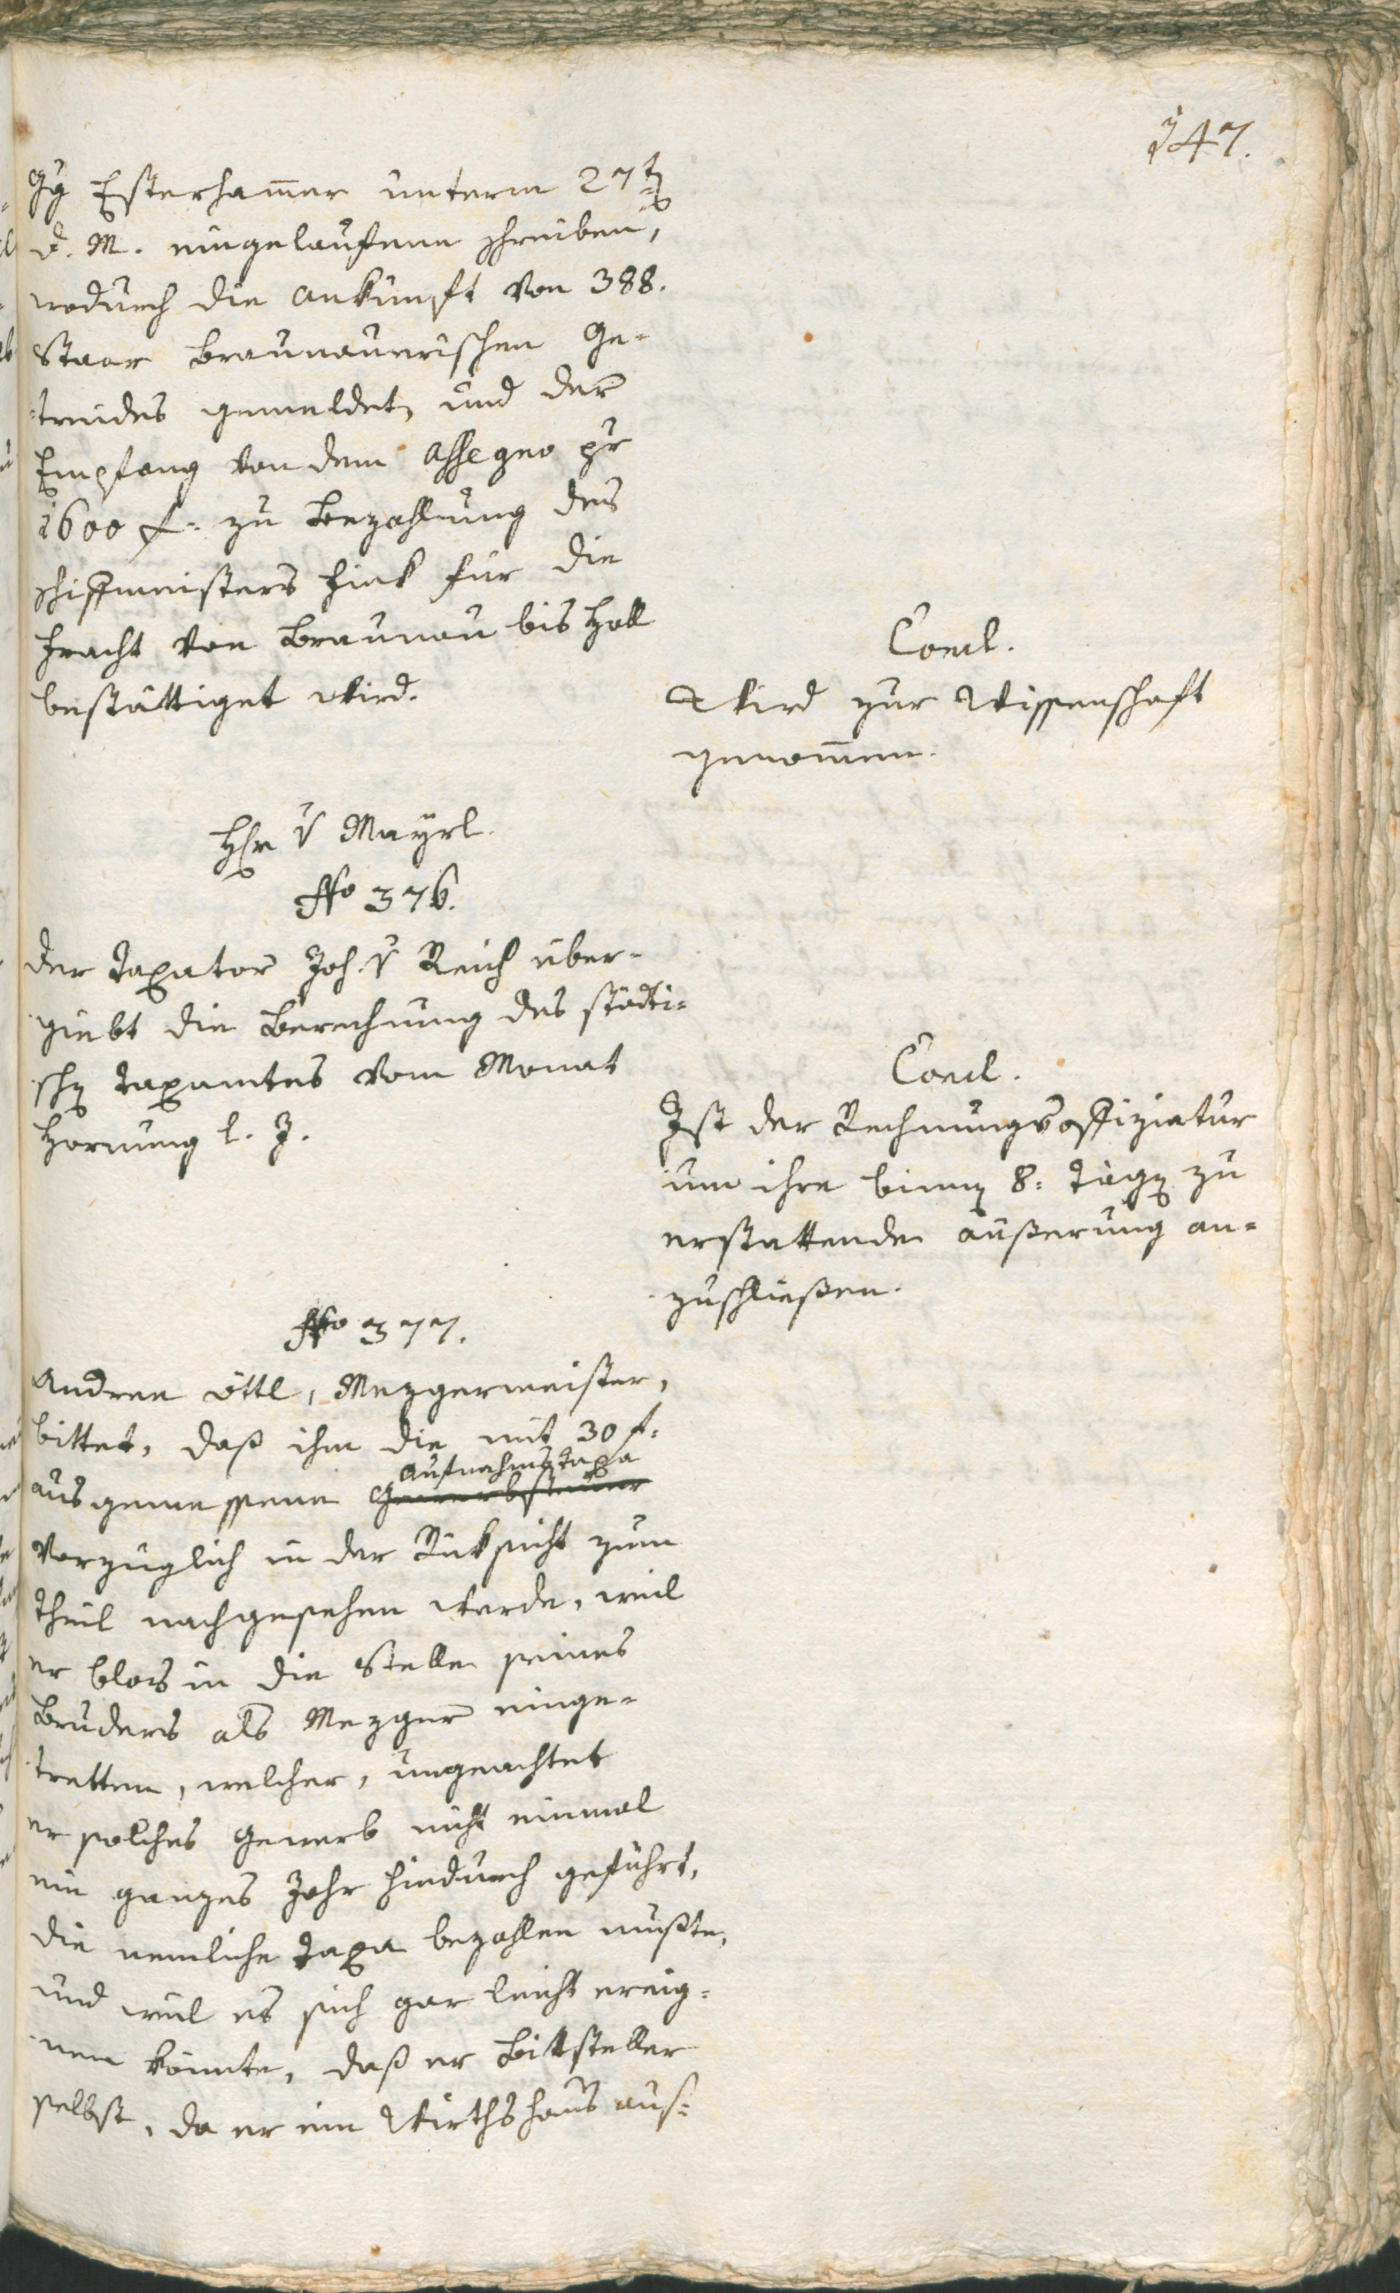 147.
Gg Esterhamer unterm 27t
d. M. eingelaufene schreiben,
wodurch die Ankunft von 388.
Staar Braunauerischen Ge-
-treides gemeldet, und der
Empfang von dem Assegno pr
1600 f. zu Bezahlung des
schiffmeisters Fink für die
Fracht von Braunau bis Hall
bestättiget wird.
Concl.
Wird zur Wissenschaft
genommen.
Hr v Mayrl.
No 376.
Der Taxator Joh. v Reich über-
giebt die Berechnung des städti-
schen Taxamtes vom Monat
Hornung l. J.
Concl.
Ist der Rechnungsoffiziatur
um ihre binnen 8: Tägen zu
erstattende äußerung an-
zuschließen.
No 377.
Andree öttl, Mezgermeister,
bittet, daß ihm die mit 30 f:
Aufnahmstaxa
ausgemessene Gewerbsteuer
vorzüglich in der Rüksicht zum
Theil nachgesehen werde, weil
er blos in die Stelle seines
Bruders als Mezger einge-
tretten, welcher, ungeachtet
er solches Gewerb nicht einmal
ein ganzes Jahr hindurch geführt,
die nemliche Taxa bezahlen mußte,
und weil es sich gar leicht ereig-
nen könnte, daß er Bittsteller
selbst, da er ein Wirthshaus aus-